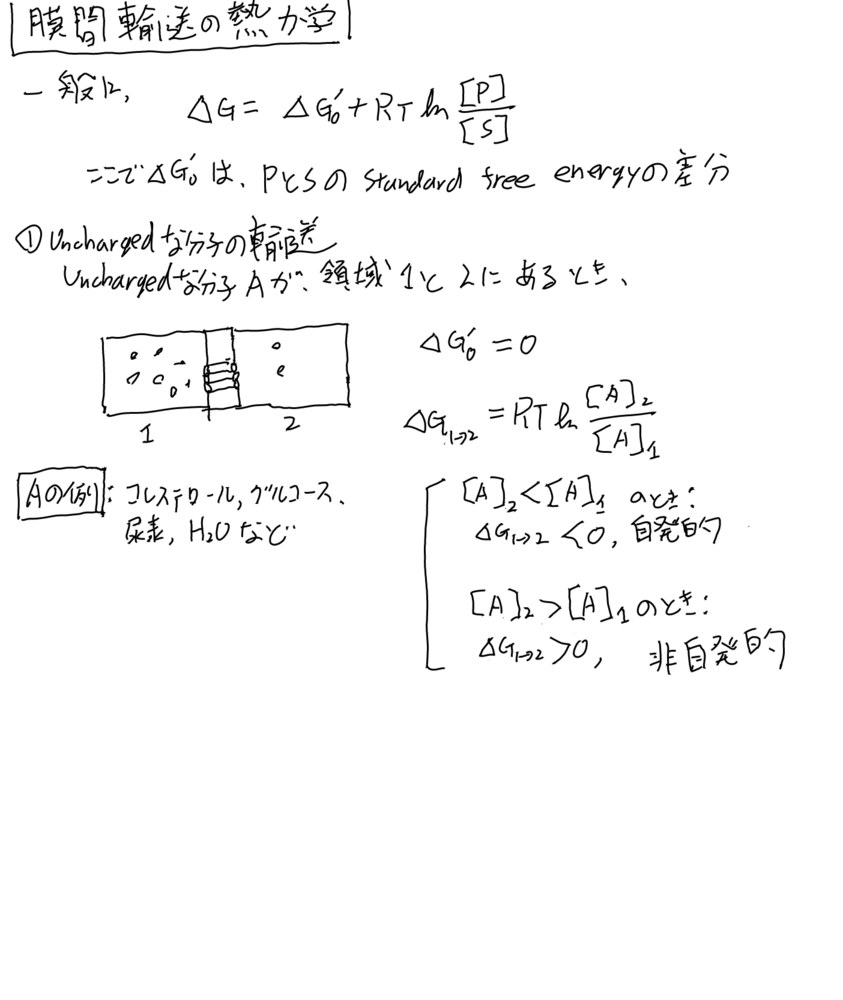 膜間輸送の熱力学
一般に,
ΔG = ΔG₀' + RT ln [P]/[S]
ここでΔG₀'は、PとSの standard free energyの差分
① Unchargedな分子の輸送
Unchargedな分子Aが、領域1と2にあるとき、
1 2
ΔG₀' = 0
ΔG₁→₂ = RT ln [A]₂/[A]₁
Aの例: コレステロール, グルコース、
尿素, H₂Oなど
[A]₂<[A]₁ のとき:
ΔG₁→₂ <0, 自発的
[A]₂>[A]₁のとき:
ΔG₁→₂>0, 非自発的